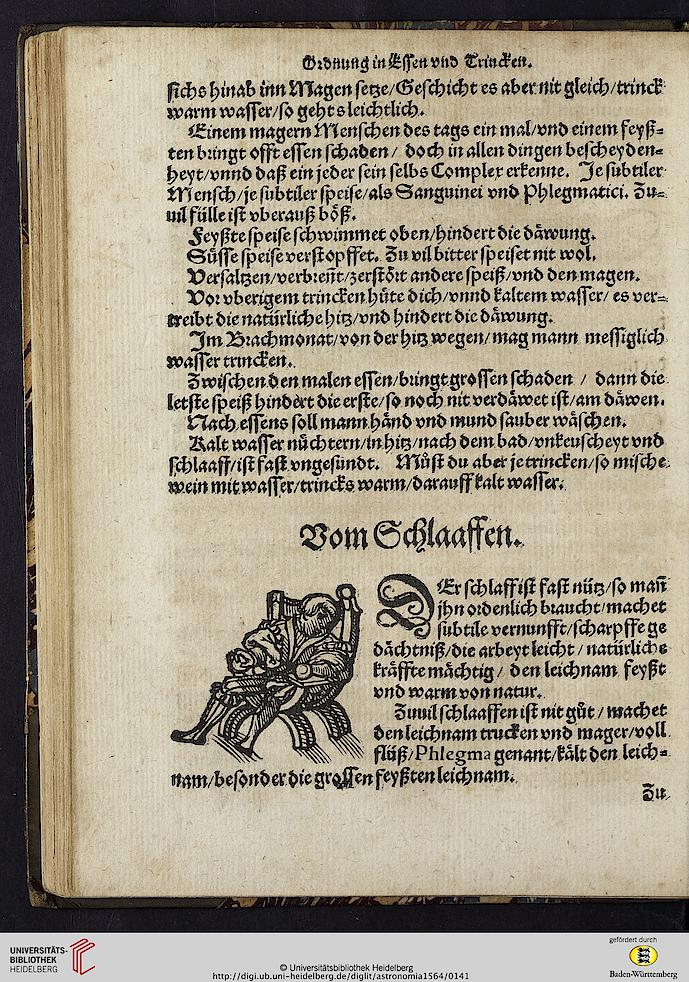 Ordnung in Essen vnd Trincken.
sichs hinab inn Magen setze/Geschicht es aber nit gleich/trinck
warm wasser/so gehts leichtlich.
Einem magern Menschen des tags ein mal/vnd einem feyß=
ten bringt offt essen schaden / doch in allen dingen bescheyden=
heyt/vnnd daß ein jeder sein selbs Complex erkenne. Je subtiler
Mensch/je subtiler speise/als Sanguinei vnd Phlegmatici. Zu=
uil fülle ist vberauß böß.
Feyßte speise schwimmet oben/hindert die däwung.
Süsse speise verstopffet. Zu vil bitter speiset nit wol.
Versaltzen/verbreñt/zerstört andere speiß/vnd den magen.
Vor vberigem trincken hüte dich/vnnd kaltem wasser/ es ver=
treibt die natürliche hitz/vnd hindert die däwung.
Jm Brachmonat/von der hitz wegen/ mag mann messiglich
wasser trincken.
Zwischen den malen essen/bringt grossen schaden / dann die
letste speiß hindert die erste/so noch nit verdäwet ist/am däwen.
Nach essens soll mann händ vnd mund sauber wäschen.
Kalt wasser nüchtern/in hitz/nach dem bad/vnkeuscheyt vnd
schlaaff/ist fast vngesundt. Müst du aber je trincken/so mische
wein mit wasser/trincks warm/darauff kalt wasser.
Vom Schlaaffen.
DEr schlaff ist fast nütz/so mañ
jhn ordenlich braucht/machet
subtile vernunfft/scharpffe ge
dächtniß/die arbeyt leicht / natürliche
kräffte mächtig / den leichnam feyßt
vnd warm von natur.
Zuuil schlaaffen ist nit güt / machet
den leichnam trucken vnd mager/voll
flüß/Phlegma genant/kält den leich=
nam/besonder die grossen feyßten leichnam.
Zu
UNIVERSITÄTS-
BIBLIOTHEK
HEIDELBERG
© Universitätsbibliothek Heidelberg
http://digi.ub.uni-heidelberg.de/diglit/astronomia1564/0141
gefördert durch
Baden-Württemberg